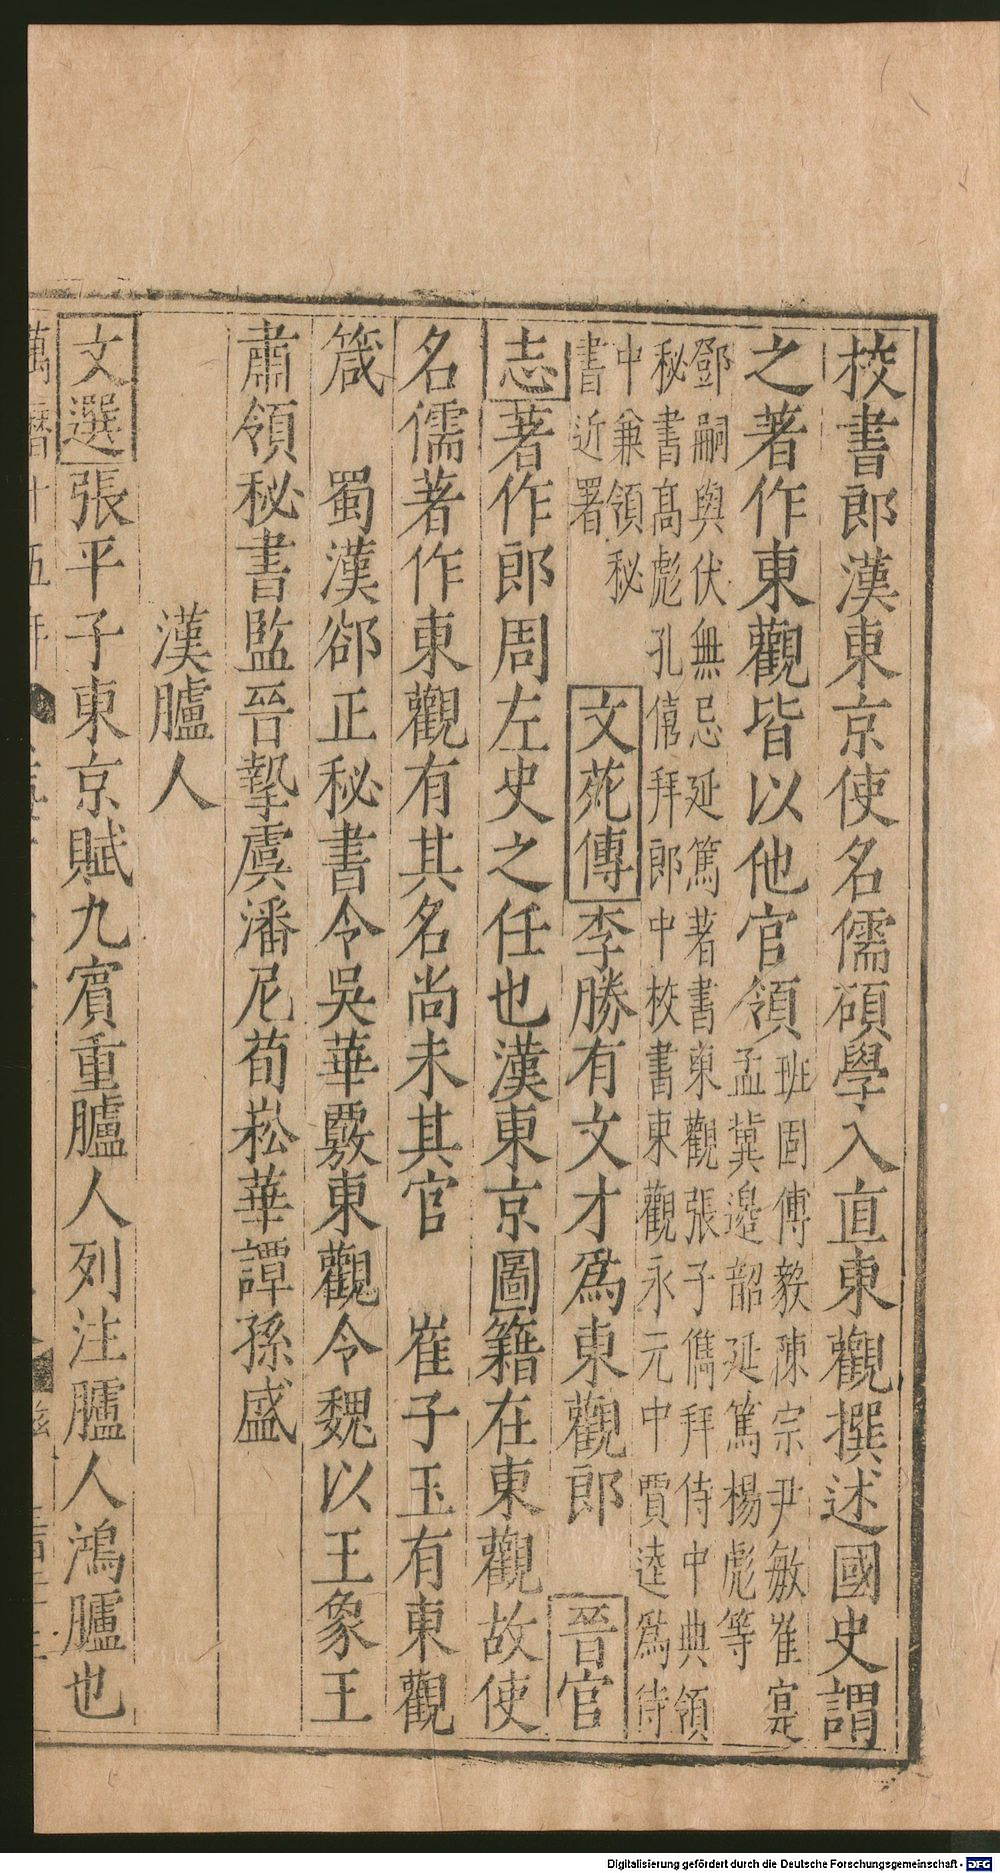 校書郎漢東京使名儒碩學入直東觀撰述國史謂
之著作東觀皆以他官領
班固傅毅陳宗尹敏崔寔
孟冀邊韶延篤楊彪等
鄧嗣與伏無忌延篤著書東觀張子儁拜侍中典領
秘書高彪孔僖拜郎中校書東觀永元中賈逵為侍
中兼領秘
書近署
文苑傳李勝有文才為東觀郎 晉官
志著作郎周左史之任也漢東京圖籍在東觀故使
名儒著作東觀有其名尚未其官 崔子玉有東觀
箴 蜀漢郤正秘書令吳華覈東觀令魏以王象王
肅領秘書監晉摯虞潘尼荀崧華譚孫盛
漢臚人
文選張平子東京賦九賓重臚人列注臚人鴻臚也
萬曆十五年
Digitalisierung gefördert durch die Deutsche Forschungsgemeinschaft - DFG